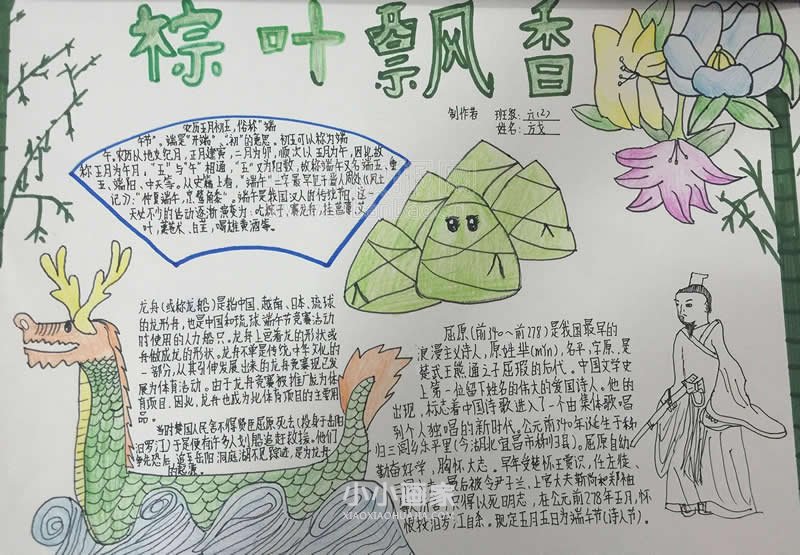 粽叶飘香
制作者 班级:六(2)
姓名:方戈
农历五月初五,俗称"端
午节"。端是"开端"、"初"的意思。初五可以称为端
午。农历以地支纪月,正月建寅,二月为卯,顺次以五月为午,因此故
称五月为午月,"五"与"午"相通,"五"又为阳数,故称端午又名端五、重
五、端阳、中天等。从史籍上看,"端午"二字最早见于晋人周处《风土
记》:"仲夏端午,烹鹜角黍"。端午是我国汉人的传统节日,这一
天必不少的活动逐渐演变为:吃粽子,赛龙舟,挂菖蒲、艾
叶,薰苍术、白芷,喝雄黄酒等。
龙舟(或称龙船)是指中国、越南、日本、琉球
的龙形舟,也是中国和琉球端午节竞赛活动
时使用的人力船只。龙舟上画着龙的形状或
舟做成龙的形状。龙舟不单是传统中华文化的
一部分,从其引伸发展出来的龙舟竞赛现已发
展为体育活动。由于龙舟竞赛被推广成为体
育项目,因此,龙舟也成为此体育项目的主要用
品。
当时楚国人民舍不得贤臣屈原死去(投身于岳阳
汨罗江)于是便有许多人划船追赶救援。他们
争先恐后,追至岳阳洞庭湖不见踪迹,是为龙舟
的起源。
屈原(前340~前278)是我国最早的
浪漫主义诗人,原姓芈(mǐn),名平,字原,是
楚武王熊通之子屈瑕的后代。中国文学史
上第一位留下姓名的伟大的爱国诗人。他的
出现,标志着中国诗歌进入了一个由集体歌唱
到个人独唱的新时代。公元前340年诞生于秭
归三闾乡乐平里(今湖北宜昌市秭归县)。屈原自幼
勤奋好学,胸怀大志。早年受楚怀王赏识,任左徒、
最后被令尹子兰、上官大夫靳尚和郑袖
得以死明志,在公元前278年五月,怀
恨投汨罗江自杀。现定五月五日为端午节(诗人节)。
小小画家
XIAOXIAOHUAJIA.COM